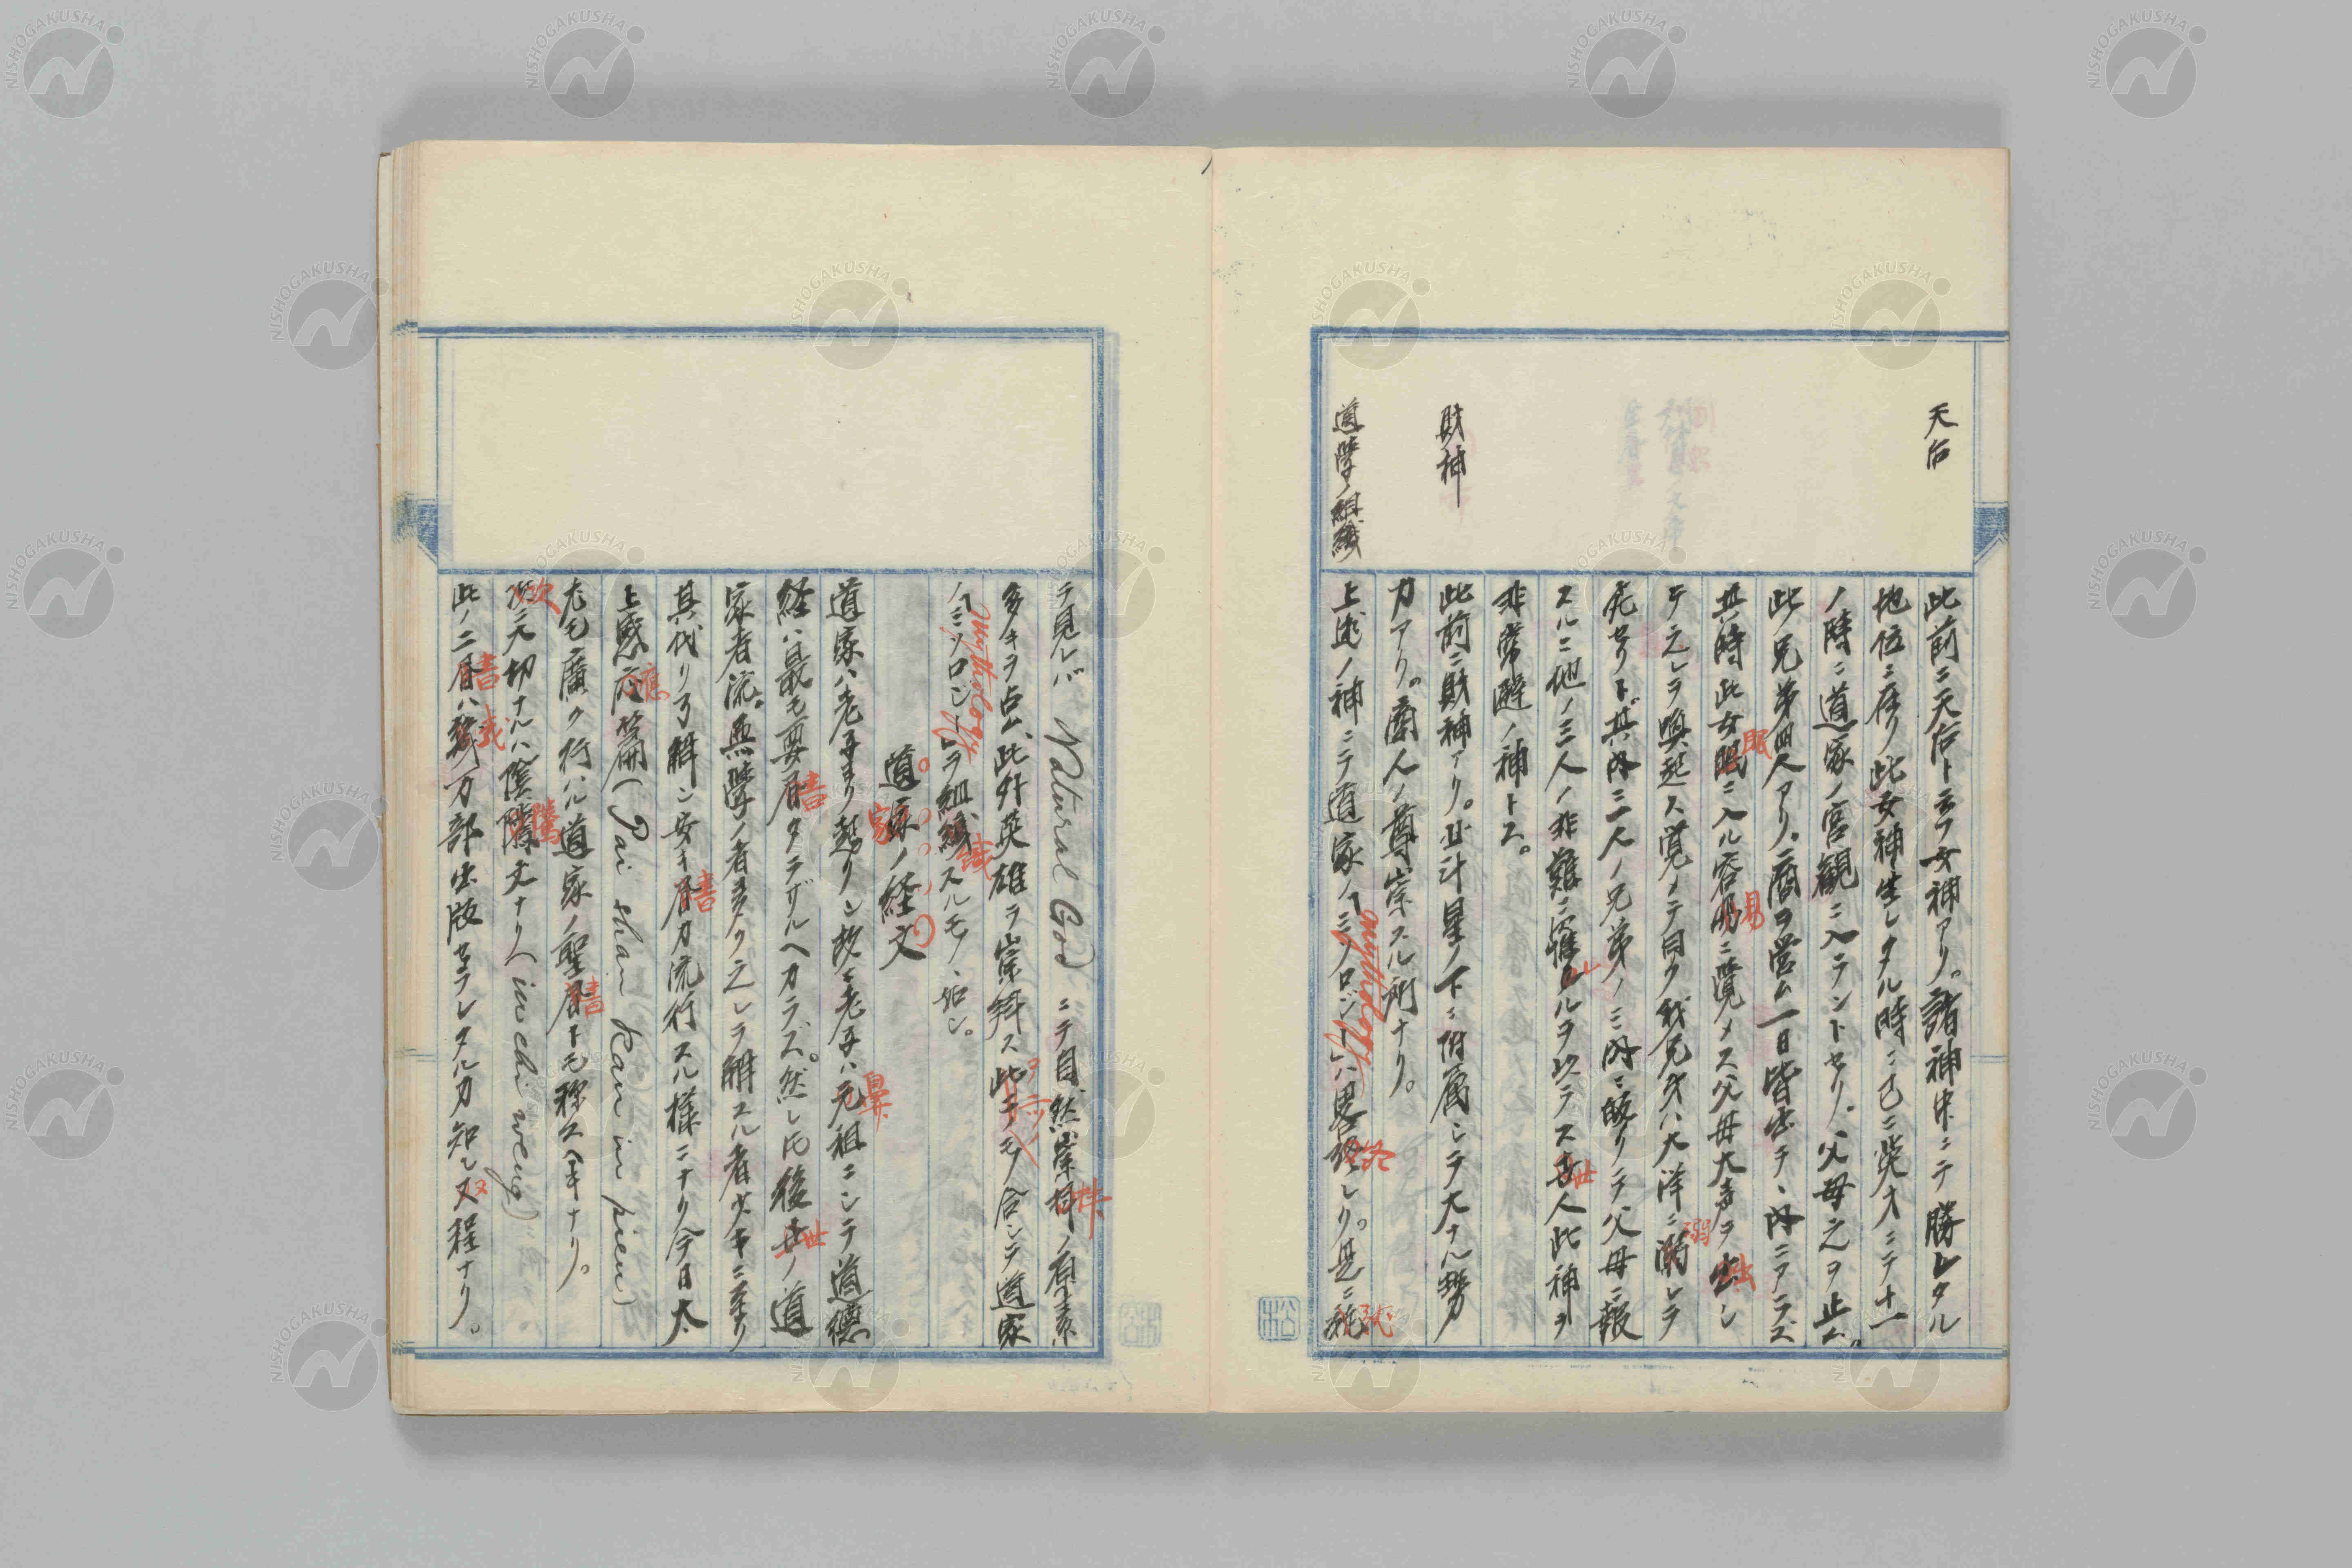 天后
此前ニ天后ト云フ女神アリ。諸神中ニテ勝レタル
地位ニ在リ此女神生レタル時ニ已ニ英才ニテ十一
ノ時ニ道家ノ宮観ニ入ラントセリ。父母之ヲ止ム。
此兄弟四人アリ。商ヲ営ム一日皆出テ、内ニアラズ
其時此女眠ニ入ル容易ニ覚メス父母大声ヲ出シ
テ之レヲ喚起ス覚メテ曰ク我兄弟ハ大洋ニ溺レテ
死セリト其内ニ一人ノ兄弟ノミ内ニ皈リテ父母ニ報
スルニ他ノ三人ノ非難ニ罹レルヲ以ラス世人此神ヲ
非常避ノ神トス。
財神
此前ニ財神アリ。北斗星ノ下ニ附属シテ大ナル勢
力アリ。商人ノ尊崇スル所ナリ。
道学ノ組織
上述ノ神ニテ道家ノ「ミソロジー」ハ畧終レリ。是ニ就
mythology
テ見レバ Natural God ニテ自然崇拝ノ原素
多キヲ占ム、此外英雄ヲ崇拜ス此ヲニツノモノ合シテ道家
ノ「ミソロジー」ヲ組織スルモノヽ如シ。
mythology
道家ノ経文
道家ハ老子ヨリ起リシ故ニ老子ハ元祖ニシテ道徳
経ハ最モ要書タラザルヘカラズ。然レ𪜈後世ノ道
家者流。無学ノ者多ク之レヲ解スル者少キニ至リ
其代リ了解シ安キ書カ流行スル様ニナリ今日太
上感應篇(Pai shan Kan in pien)
尤モ廣ク行ハル道家ノ聖書トモ称スヘキナリ。
次ニ大切ナルハ陰隲文ナリ(in chi weng)
此ノ二書ハ幾万部出版セラレタルカ知レヌ程ナリ。
NISHOGAKUSHA